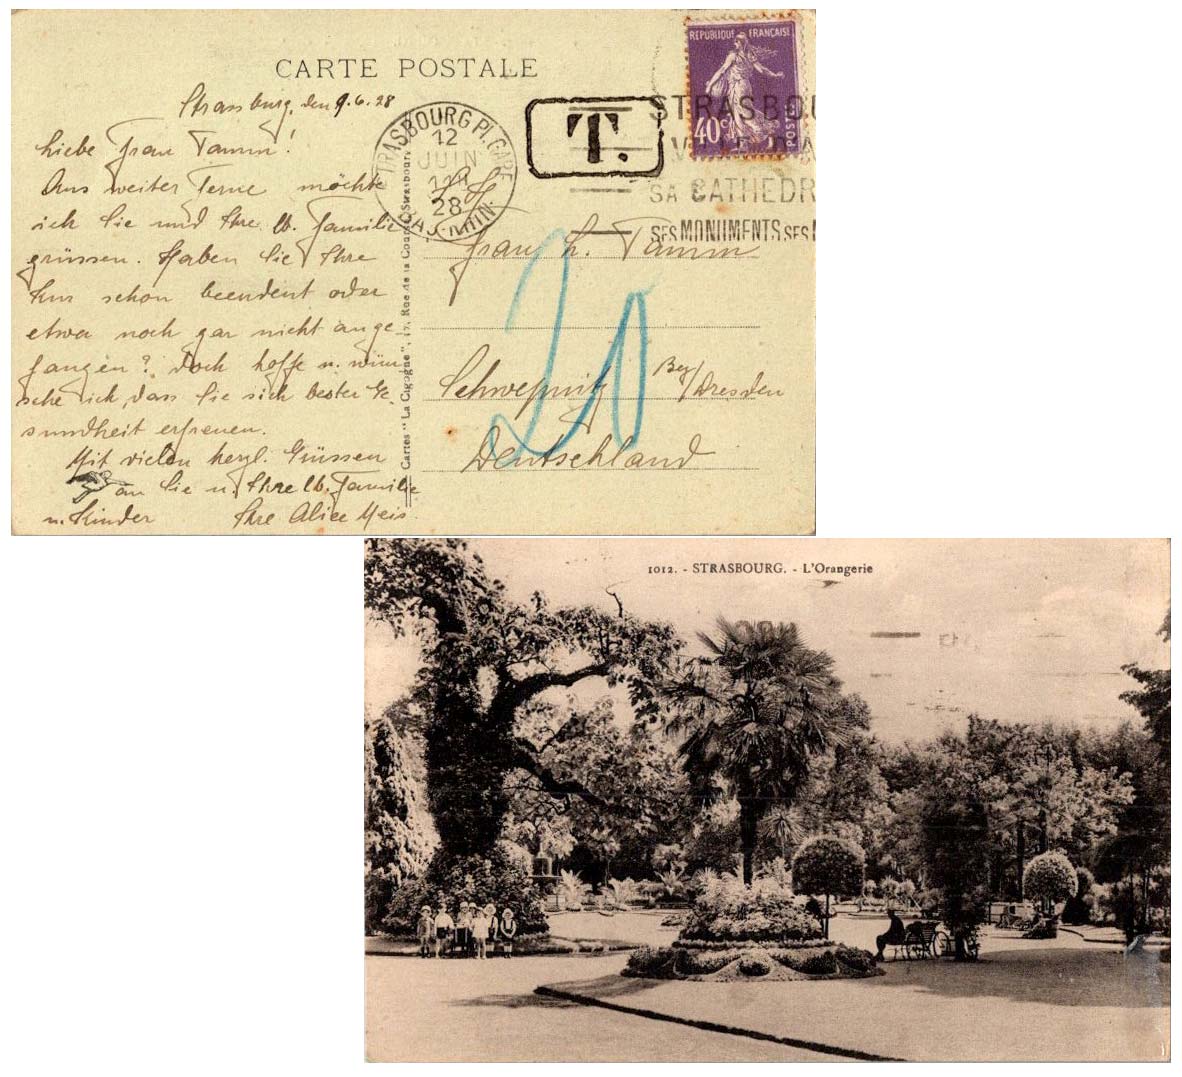 CARTE POSTALE
Strassburg, den 9.6.28
Liebe Frau Tamm!
Aus weiter Ferne möchte
ich Sie und Ihre lb. Familie
grüssen. Haben Sie Ihre
Kur schon beendent oder
etwa noch gar nicht ange-
fangen? Doch hoffe u. wün-
sche ich, dass Sie sich bester Ge-
sundheit erfreuen.
Mit vielen herzl. Grüssen
an Sie u. Ihre lb. Familie
u. Kinder Ihre Alice Meis.
Cartes "La Cigogne", 17, Rue de la Course, Strasbourg
STRASBOURG Pl. GARE
12
JUIN
28
BAS-RHIN
T.
REPUBLIQUE FRANÇAISE
40c
POSTES
STRASBOU
SA CATHEDR
SES MONUMENTS. SES
Frau H. Tamm
20
Schwepnitz Bez/Dresden
Deutschland
1012. - STRASBOURG. - L'Orangerie